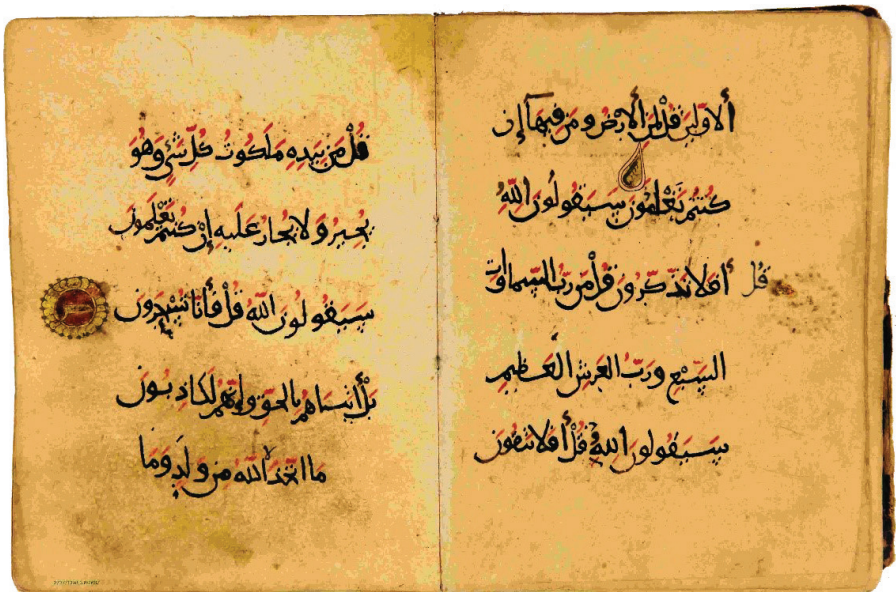 ألاولين قل لمن ألارض ومن فيها إن
كنتم تعلمون سيقولون الله
قل أفلا تذكرون قل من رب السماوات
السبع ورب العرش العظيم
سيقولون الله قل أفلا تتقون
قل من بيده ملكوت كل شيء وهو
يجير ولا يجار عليه إن كنتم تعلمون
سيقولون الله قل فأنا تسحرون
بل أتيناهم بالحق وإنهم لكاذبون
ما اتخذ الله من ولد وما